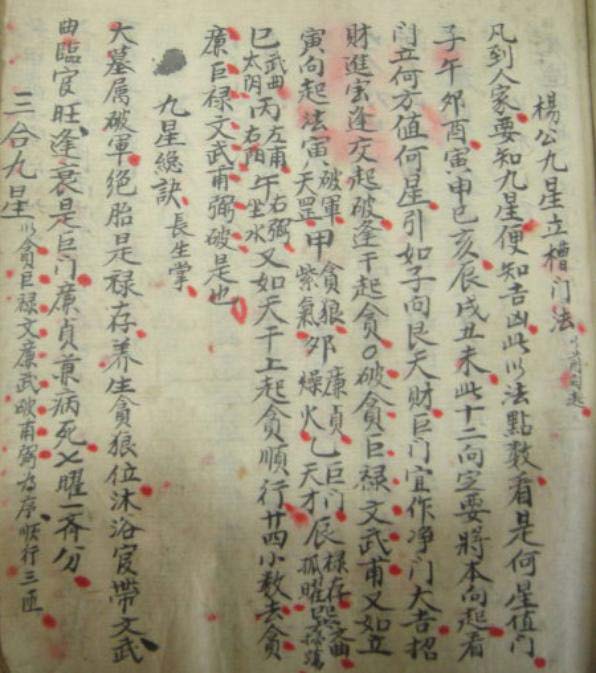 楊公九星立槽门法
凡到人家要知九星便知吉凶此以法點数看是何星值门
子午夘酉寅申巳亥辰戌丑未此十二向定要將本向起看
门立何方值何星引如子向艮天財巨门宜作净门大吉招
財進宝逢交起破逢干起貪〇破貪巨禄文武甫又如立
寅向起法寅破軍天罡甲貪狼紫氣夘廉貞燥火乙巨门天才辰禄存孤曜巽文曲掃蕩
巳武曲太阴丙左甫右阳午右弼坐水又如天干上起貪順行廿四小数去貪
廉巨禄文武甫弼破是也
九星總訣長生掌
大墓属破軍絶胎是禄存养生貪狼位沐浴冠帶文武
曲臨官旺逢衰是巨门廉貞兼病死七曜一斉分
三合九星以貪巨禄文廉武破甫弼為序順行三匝